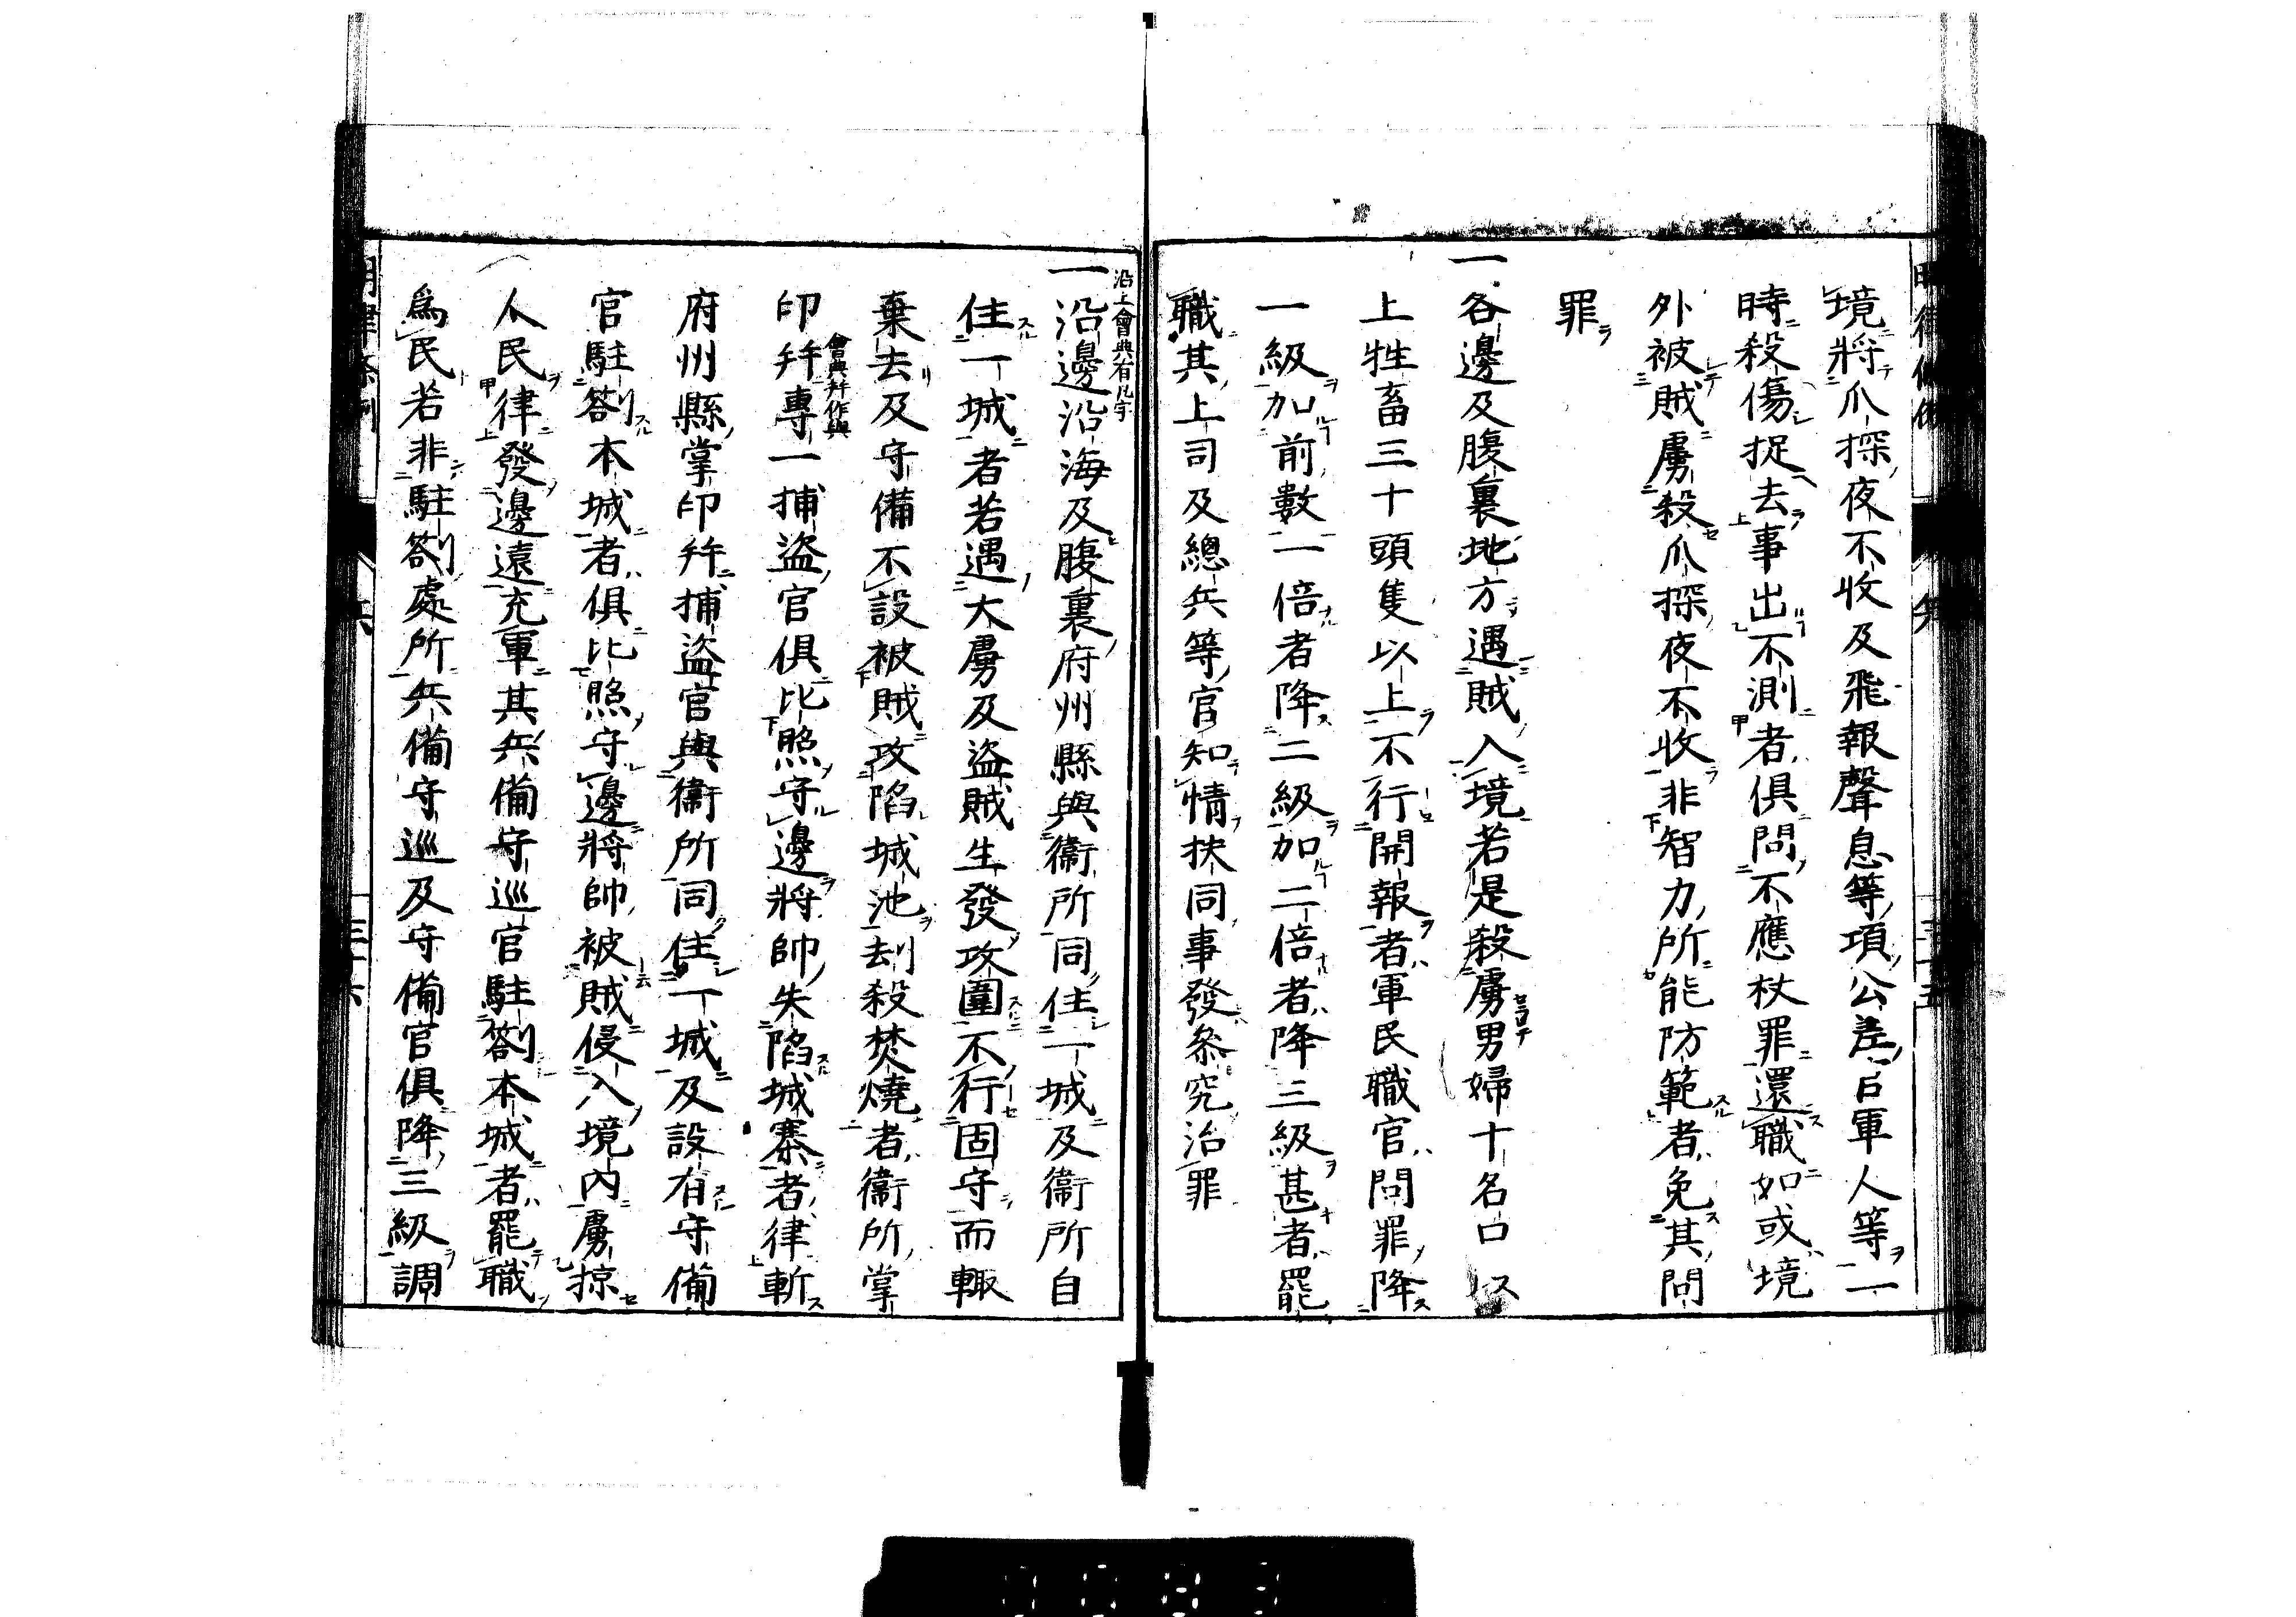 境將爪探夜不收及飛報聲息等項公差官軍人等一
時殺傷捉去事出不測者俱問不應杖罪還職如或境
外被賊虜殺爪探夜不收非智力所能防範者免其問
罪
一各邊及腹裏地方遇賊入境若是殺虜男婦十名口以
上牲畜三十頭隻以上不行開報者軍民職官問罪降
一級加前數一倍者降二級加二倍者降三級甚者罷
職其上司及總兵等官知情扶同事發參究治罪
沿上會典有凡字
一沿邊沿海及腹裏府州縣與衞所同住一城及衞所自
住一城者若遇大虜及盜賊生發攻圍不行固守而輙
棄去及守備不設被賊攻陷城池刦殺焚燒者衞所掌
印幷專一捕盜官俱比照守邊將帥失陷城寨者律斬
會典幷作與
府州縣掌印幷捕盜官與衞所同住一城及設有守備
官駐劄本城者俱比照守邊將帥被賊侵入境內虜掠
人民律發邊遠充軍其兵備守巡官駐劄本城者罷職
爲民若非駐劄處所兵備守巡及守備官俱降三級調